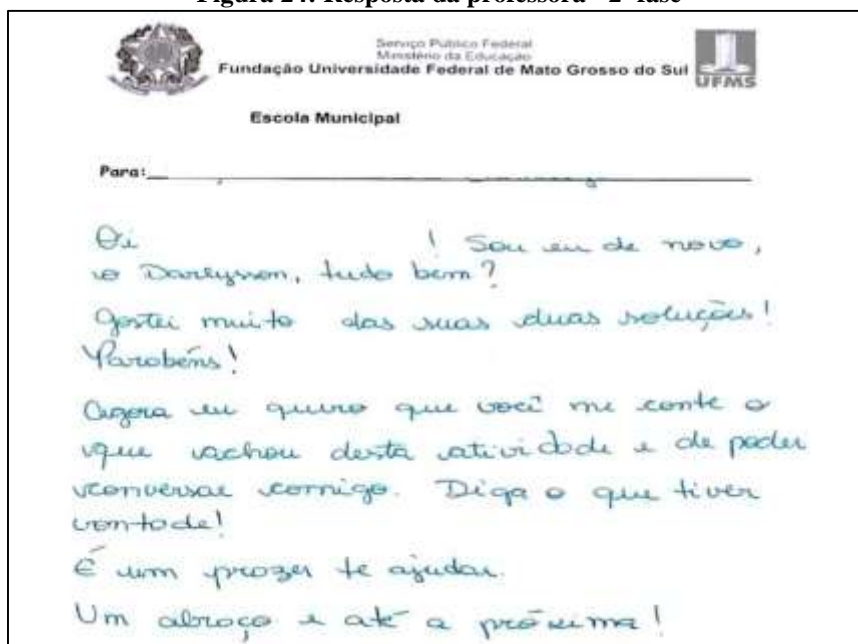 Figura 24: Resposta da professora - 2ª fase
Serviço Público Federal
Ministério da Educação
Fundação Universidade Federal de Mato Grosso do Sul
UFMS
Escola Municipal
Para:
Oi ! Sou eu de novo,
o Darlysson, tudo bem?
Gostei muito das suas duas soluções!
Parabéns!
Agora eu quero que você me conte o
que achou desta atividade e de poder
conversar comigo. Diga o que tiver
vontade!
É um prazer te ajudar.
Um abraço e até a próxima!